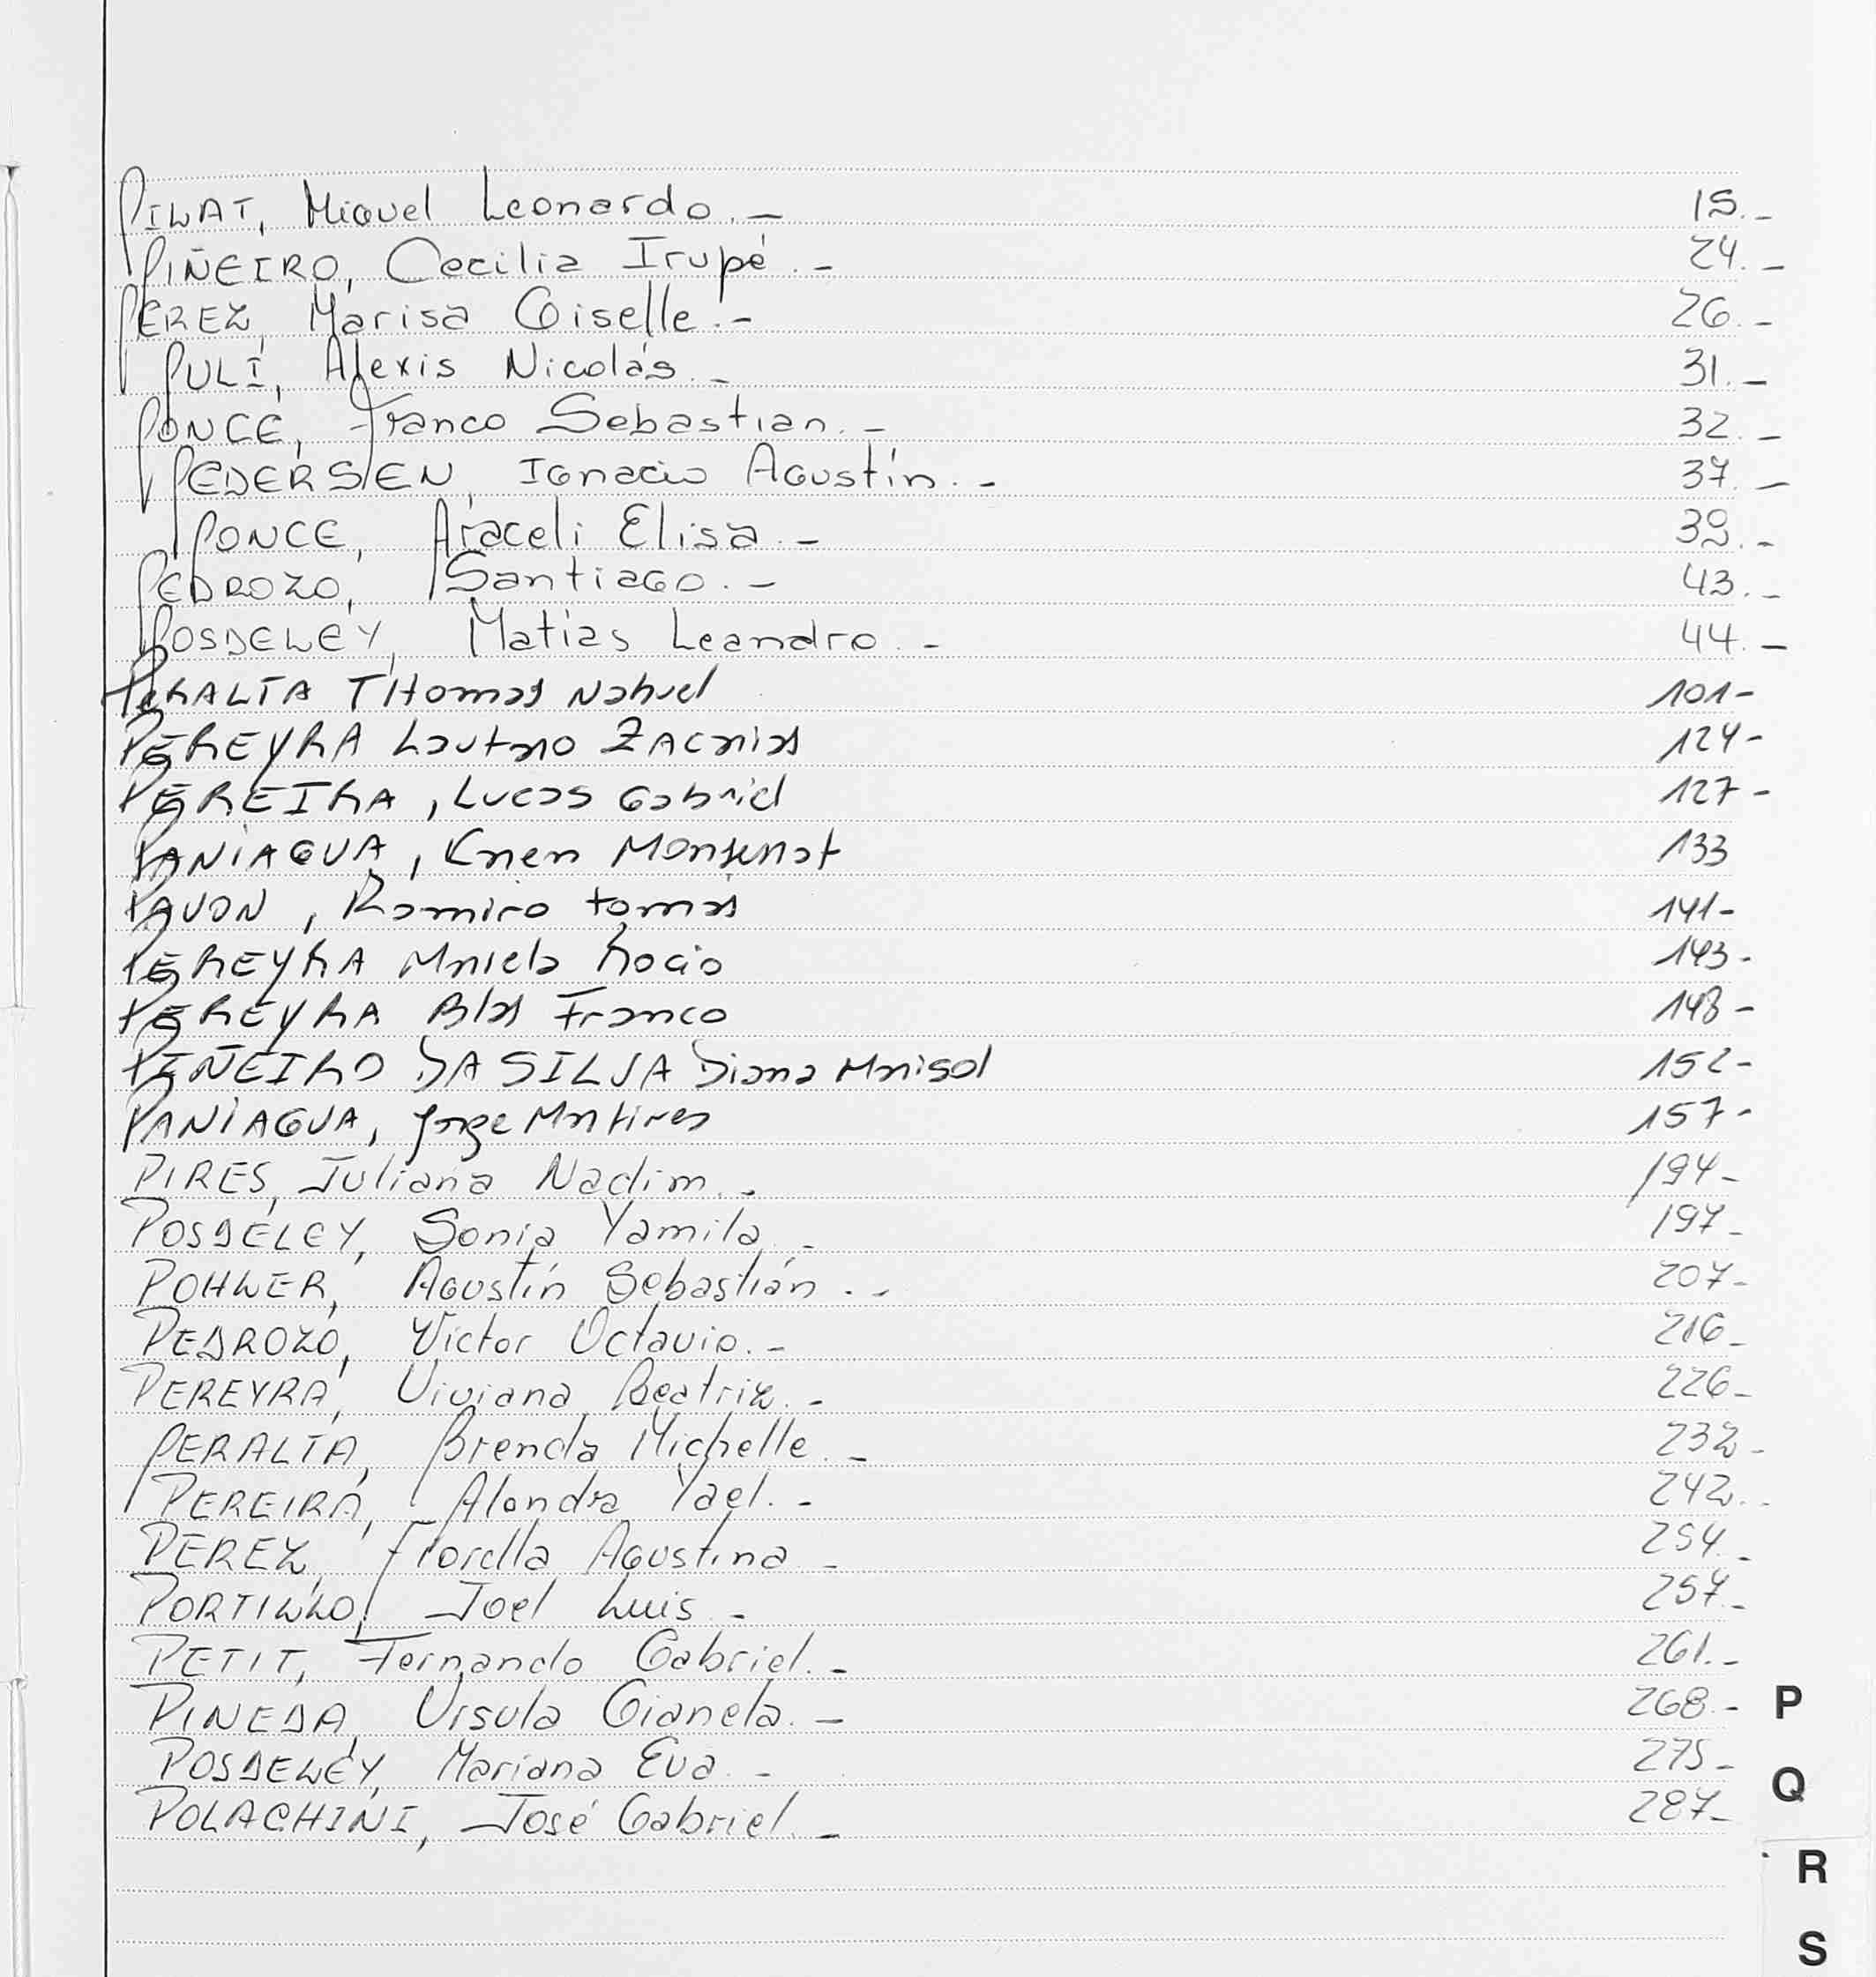 PILAT, Miguel Leonardo.- 15.-
PIÑEIRO, Cecilia Irupé.- 24.-
PEREZ, Marisa Giselle.- 26.-
PULI, Alexis Nicolás.- 31.-
PONCE, Franco Sebastian.- 32.-
PEDERSEN, Ignacio Agustín.- 37.-
PONCE, Araceli Elisa.- 39.-
PEDROZO, Santiago.- 43.-
POSDELEY, Matias Leandro.- 44.-
PERALTA THomas Nahuel 101-
PEREYRA Lautaro ZACARIAS 124-
PEREIRA, Lucas Gabriel 127-
PANIAGUA, Karen Monserrat 133
PAVON, Ramiro tomas 141-
PEREYRA Mariela Rocio 143-
PEREYRA Blas Franco 148-
PIÑEIRO DA SILVA Diana Marisol 152-
PANIAGUA, Jorge 157-
PIRES, Juliana Nadim.- 194-
POSDELEY, Sonia Yamila.- 197-
POHLER, Agustín Sebastián.- 207-
PEDROZO, Victor Octavio.- 216-
PEREYRA, Viviana Beatriz.- 226-
PERALTA, Brenda Michelle.- 232-
PEREIRA, Alondra Yael.- 242.-
PEREZ, Fiorella Agustina.- 254.-
PORTILLO, Joel Luis.- 257.-
PETIT, Fernando Gabriel.- 261.-
PINEDA, Ursula Gianela.- 268.-
P
POSDELEY, Mariana Eva.- 275-
Q
POLACHINI, José Gabriel.- 287-
R
S